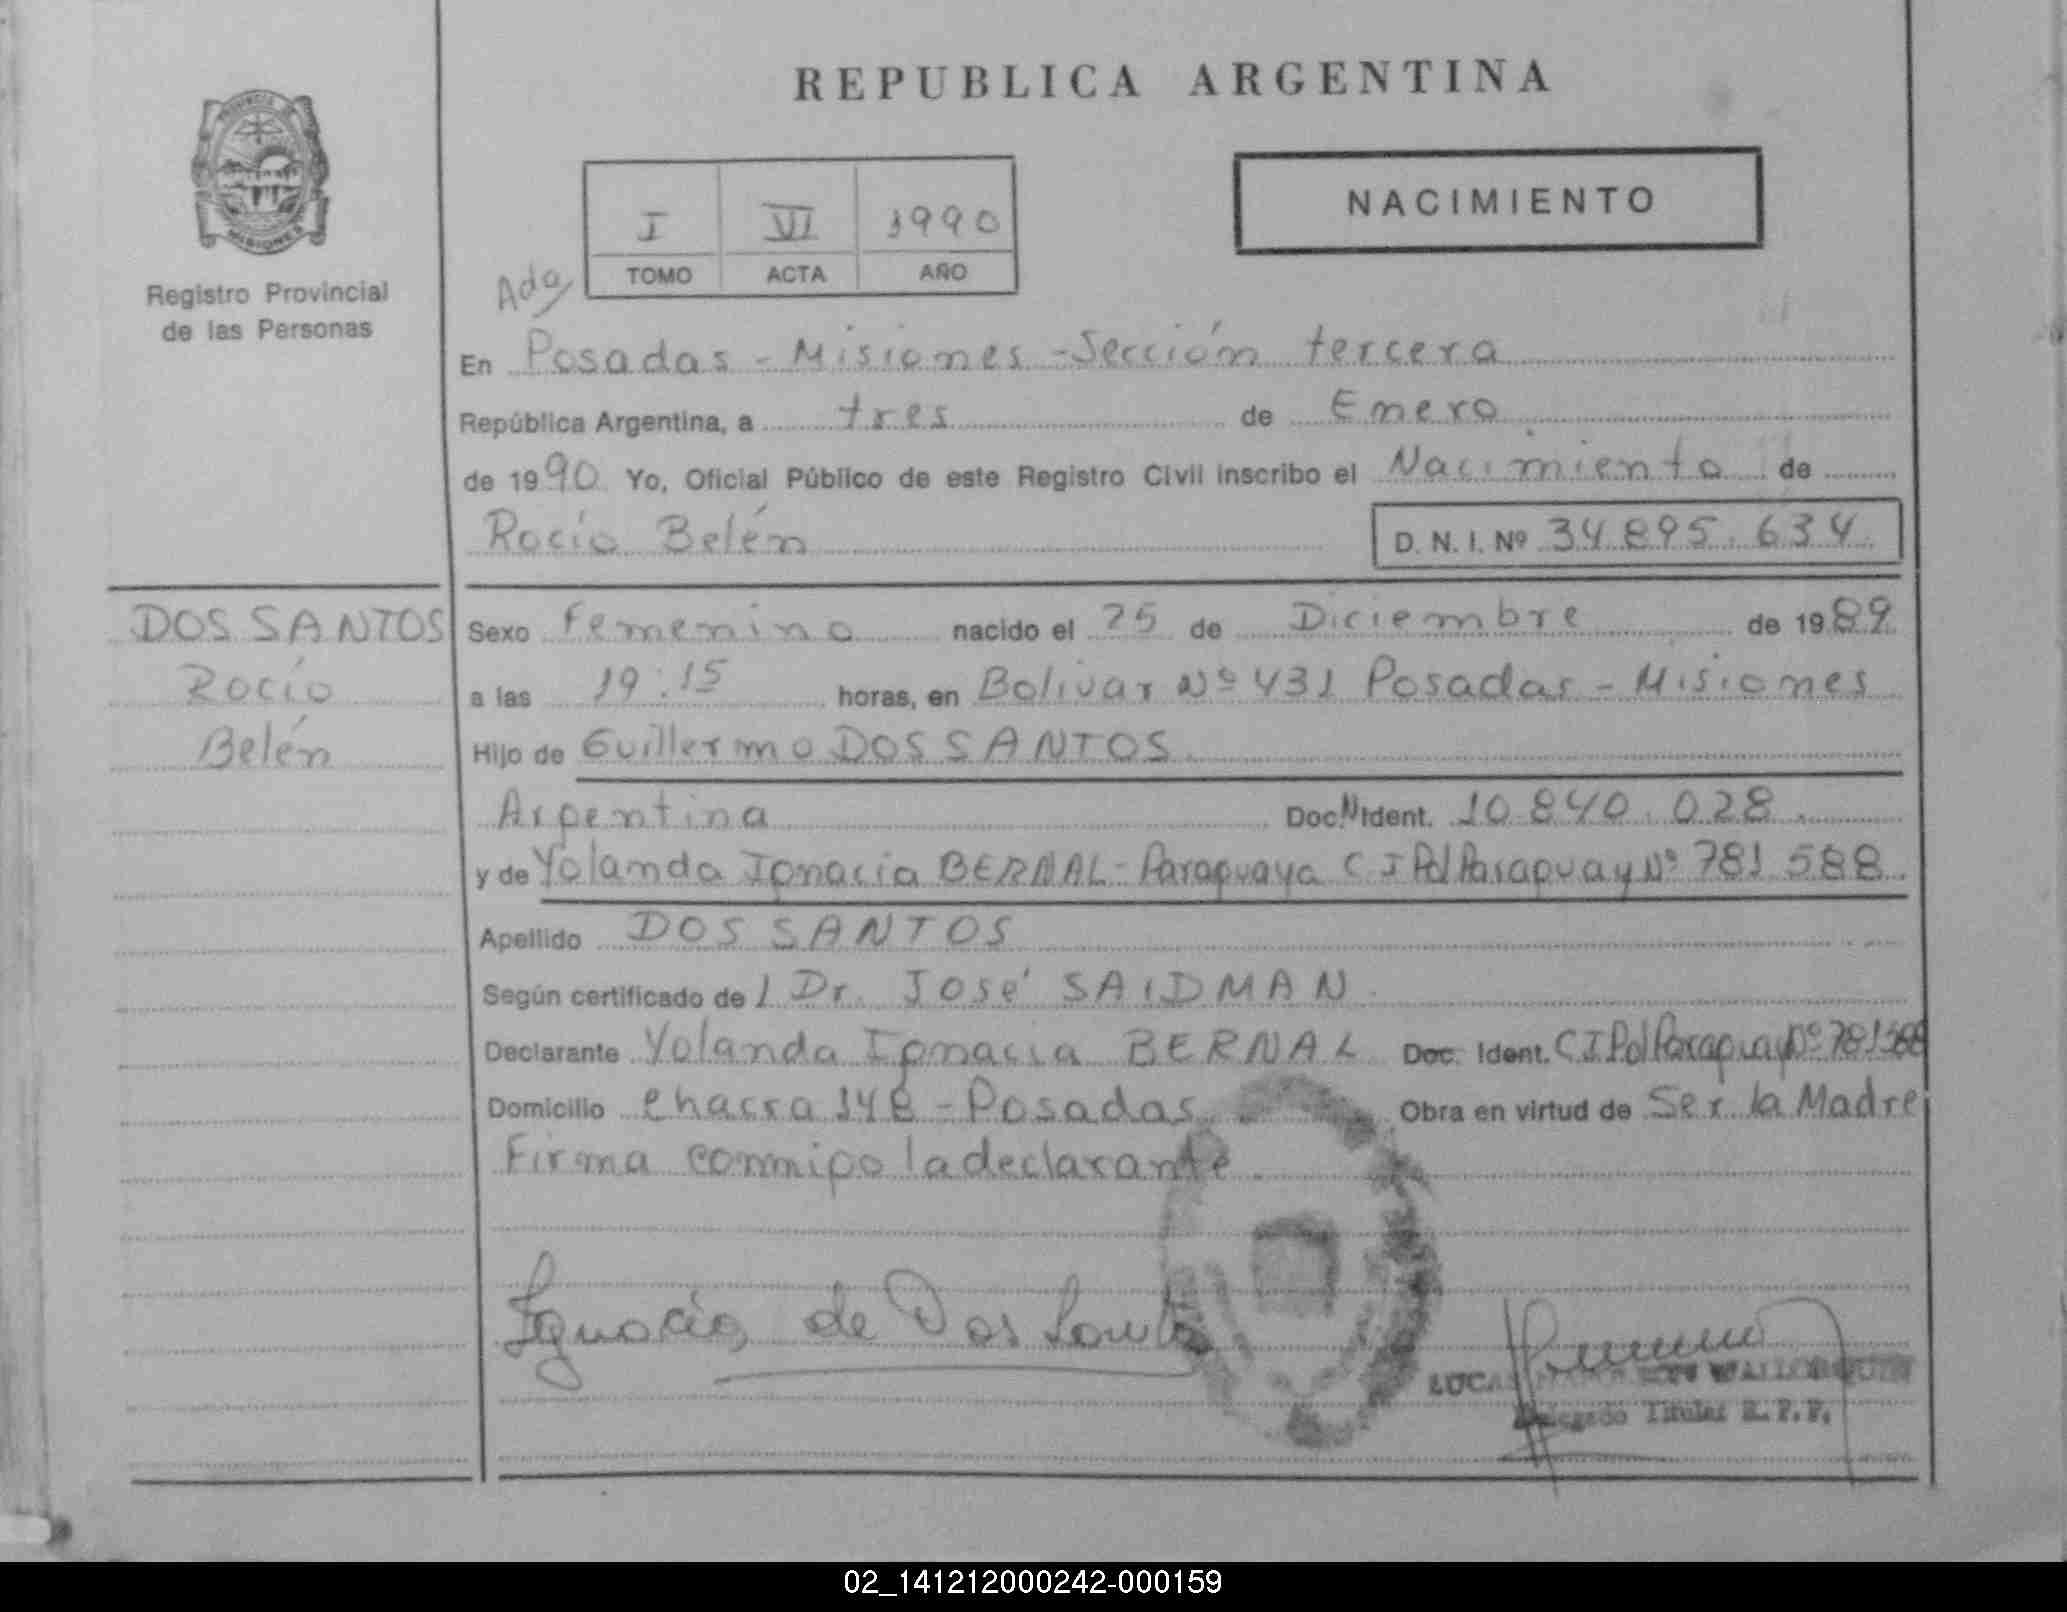 REPUBLICA ARGENTINA
PROVINCIA
MISIONES
Registro Provincial
de las Personas
NACIMIENTO
I VI 1990
TOMO ACTA AÑO
En Posadas - Misiones - Sección tercera
República Argentina, a tres de Enero
de 1990 Yo, Oficial Público de este Registro Civil inscribo el Nacimiento de
Rocío Belén D. N. I. Nº 34895.634
DOS SANTOS
Rocío
Belén
Sexo Femenino nacido el 25 de Diciembre de 1989
a las 19:15 horas, en Bolivar Nº 431 Posadas - Misiones
Hijo de Guillermo DOS SANTOS
Argentina Doc. N Ident. 10.840.028
y de Yolanda Ignacia BERNAL - Paraguaya C I Pol Paraguay Nº 781 588
Apellido DOS SANTOS
Según certificado de l Dr. José SAIDMAN
Declarante Yolanda Ignacia BERNAL Doc. Ident. C I Pol Paraguay Nº 781588
Domicilio chacra 148 - Posadas Obra en virtud de Ser la Madre
Firma conmigo la declarante
Ignacia de Dos Santos
LUCAS
Delegado Titular R. P. P.
02_141212000242-000159